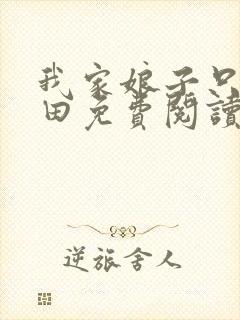 我家娘子只
田免費閱讀
逆旅舍人